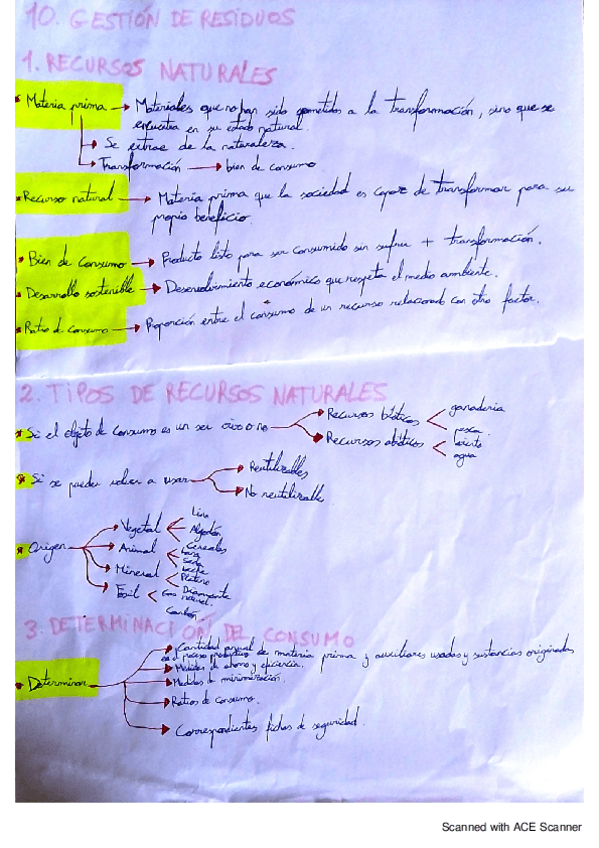 10. GESTIÓN DE RESIDUOS
1. RECURSOS NATURALES
* Materia prima → Materiales que no han sido sometidos a la transformación, sino que se
encuentra en su estado natural.
→ Se extrae de la naturaleza.
→ Transformación → bien de consumo
* Recurso natural → Materia prima que la sociedad es capaz de transformar para su
propio beneficio.
* Bien de Consumo → Producto listo para ser consumido sin sufrir + transformación.
* Desarrollo sostenible → Desenvolvimiento económico que respeta el medio ambiente.
* Ratio de consumo → Proporción entre el consumo de un recurso relacionado con otro factor.
2. TIPOS DE RECURSOS NATURALES
* Si el objeto de consumo es un ser vivo o no
Recursos bióticos
ganadería
pesca
Recursos abióticos
viento
agua
* Si se pueden volver a usar
Reutilizables
No reutilizable
* Origen
Vegetal
Lino
Algodón
Cereales
Animal
Lana
Seda
Leche
Mineral
Platino
Diamante
Fósil
Gas natural.
Carbón
3. DETERMINACIÓN DEL CONSUMO
* Determinar
Cantidad anual de materia prima y auxiliares usados y sustancias originadas
en el proceso productivo
Medidas de ahorro y eficiencia.
Medidas de minimización.
Ratios de consumo.
Correspondientes fichas de seguridad.
Scanned with ACE Scanner